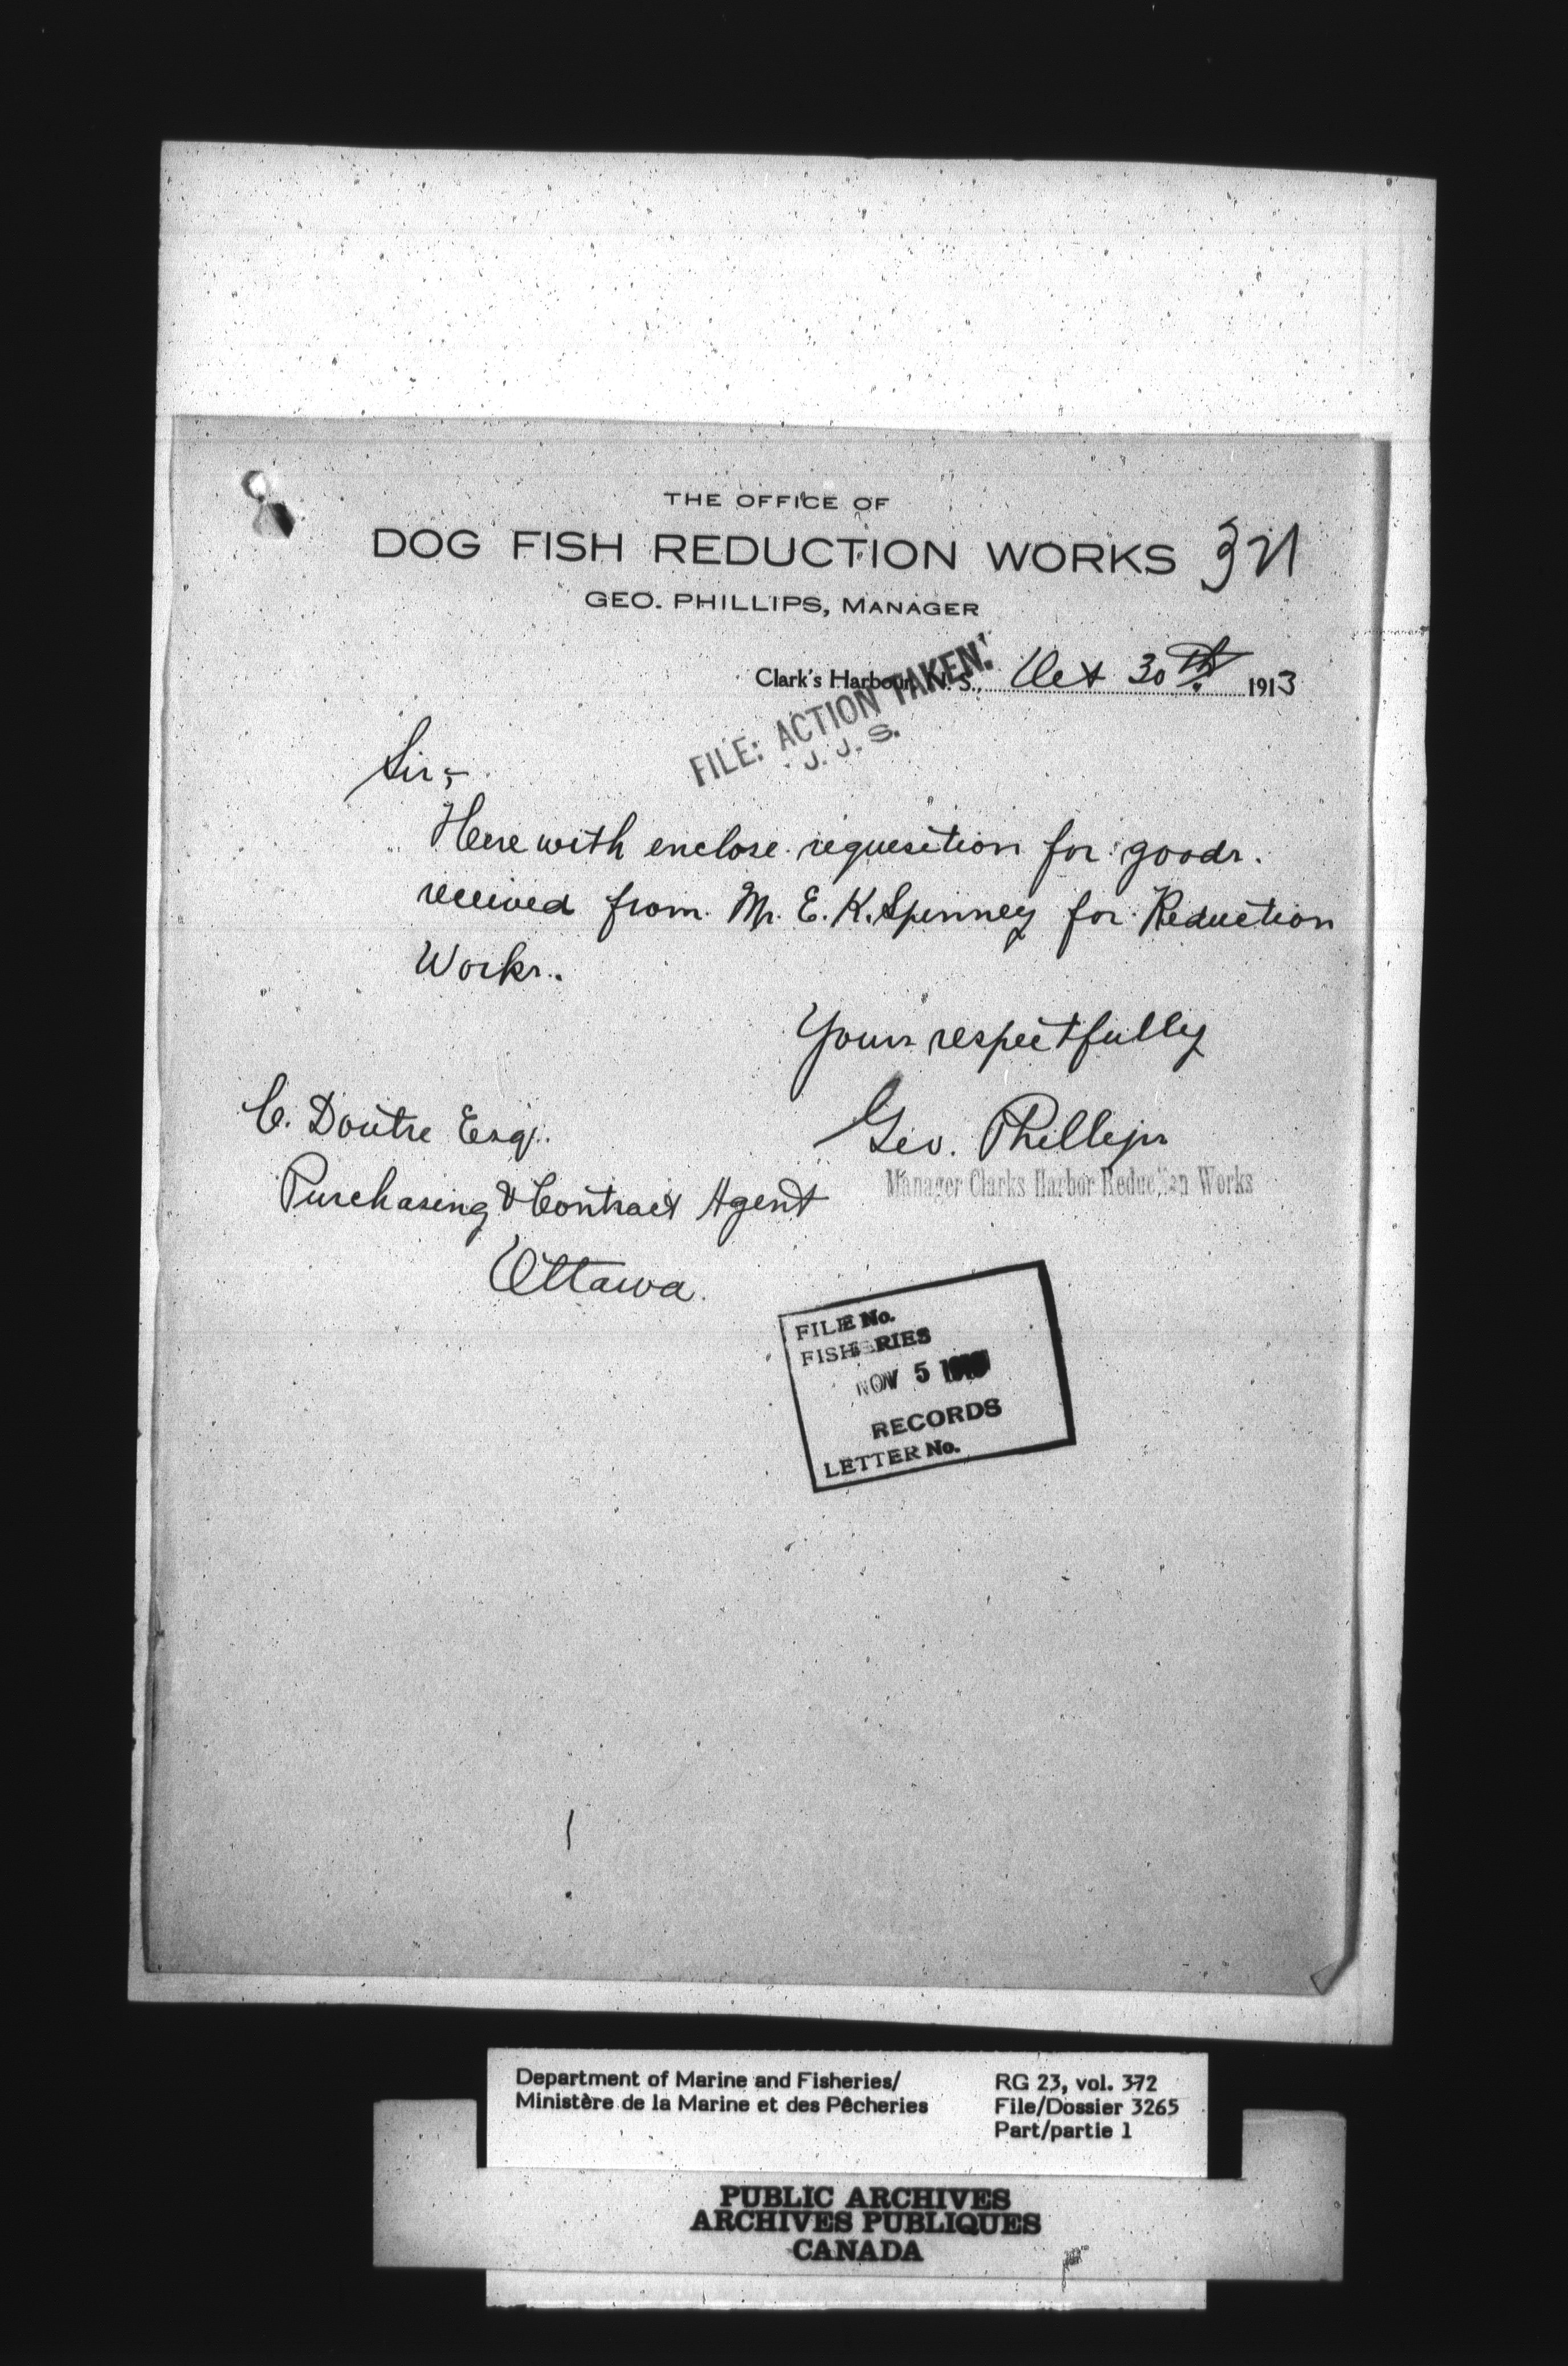 THE OFFICE OF
DOG FISH REDUCTION WORKS 321
GEO. PHILLIPS, MANAGER
Clark's Harbour, N. S., Oct 30th. 1913
FILE: ACTION TAKEN.
J. J. S.
Sir,
Herewith enclose requesition for goods.
received from Mr. E. K. Spinney for Reduction
Works.
Yours respectfully
Geo. Phillips
Manager Clarks Harbor Reduction Works
C. Doutre Esq.
Purchasing & Contract Agent
Ottawa.
FILE No.
FISHERIES
NOV 5
RECORDS
LETTER No.
Department of Marine and Fisheries/
Ministère de la Marine et des Pêcheries
RG 23, vol. 372
File/Dossier 3265
Part/partie 1
PUBLIC ARCHIVES
ARCHIVES PUBLIQUES
CANADA